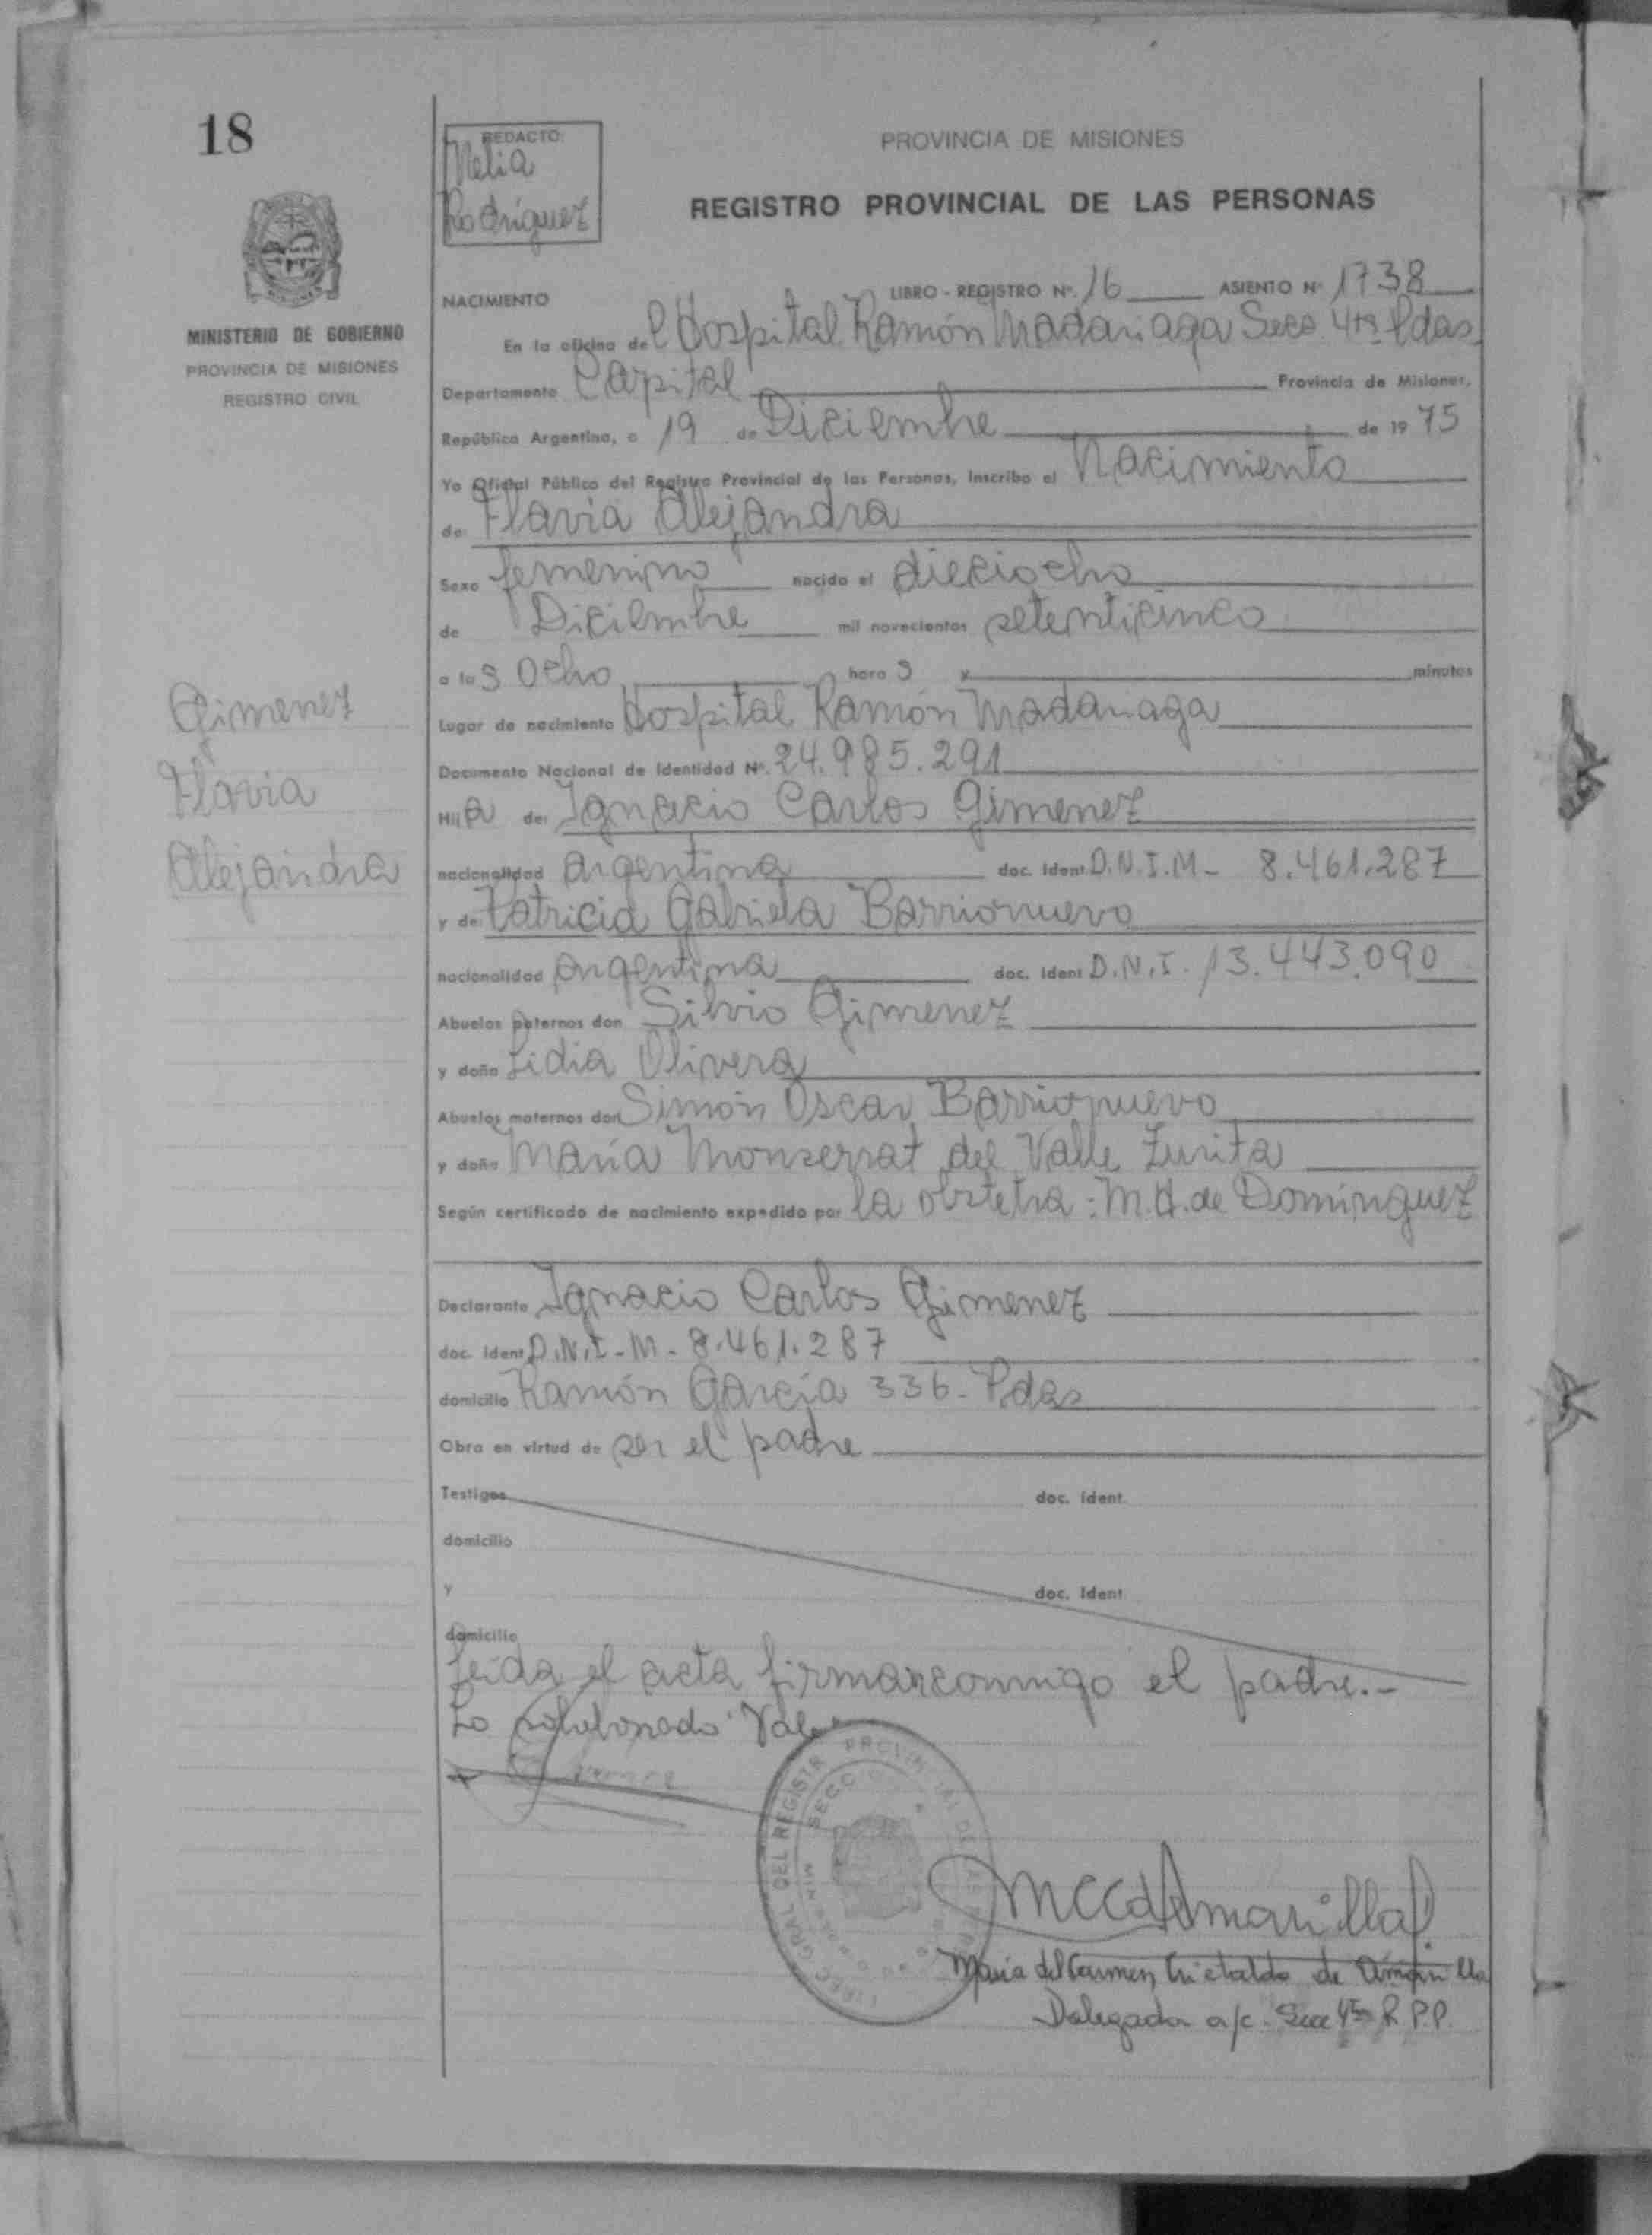 18
REDACTO:
Nelia
Rodríguez
PROVINCIA DE MISIONES
REGISTRO PROVINCIAL DE LAS PERSONAS
MINISTERIO DE GOBIERNO
PROVINCIA DE MISIONES
REGISTRO CIVIL
NACIMIENTO LIBRO - REGISTRO Nº. 16 ASIENTO Nº 1738
En la oficina del Hospital Ramón Madariaga Secc. 4ta Pdas
Departamento Capital Provincia de Misiones,
República Argentina, a 19 de Diciembre de 1975
Yo Oficial Público del Registro Provincial de las Personas, Inscribo el Nacimiento
de Flavia Alejandra
Sexo femenino nacido el dieciocho
de Diciembre mil novecientos setenticinco
a las Ocho horas y minutos
Lugar de nacimiento Hospital Ramón Madariaga
Documento Nacional de Identidad Nº. 24.985.291
Hija de: Ignacio Carlos Gimenez
nacionalidad argentina doc. Ident D.N.I.M- 8.461.287
y de Patricia Gabriela Barrionuevo
nacionalidad argentina doc. Ident D.N.I. 13.443.090
Abuelos paternos don Silvio Gimenez
y doña Lidia Olivera
Abuelos maternos don Simón Oscar Barrionuevo
y doña María Monserrat del Valle Zurita
Según certificado de nacimiento expedido por la obstetra: M.A. de Domínguez
Gimenez
Flavia
Alejandra
Declarante Ignacio Carlos Gimenez
doc. Ident D.N.I-M- 8.461.287
domicilio Ramón García 336- Pdas
Obra en virtud de ser el padre
Testigos doc. ident.
domicilio
y doc. Ident
domicilio
Leída el acta firman conmigo el padre.-
Lo Vale
GRAL DEL REGISTR PROVIN
SECC
MCCdeAmarilla
María del Carmen de Amarilla
Delegada a/c. Secc 4ta R.P.P.